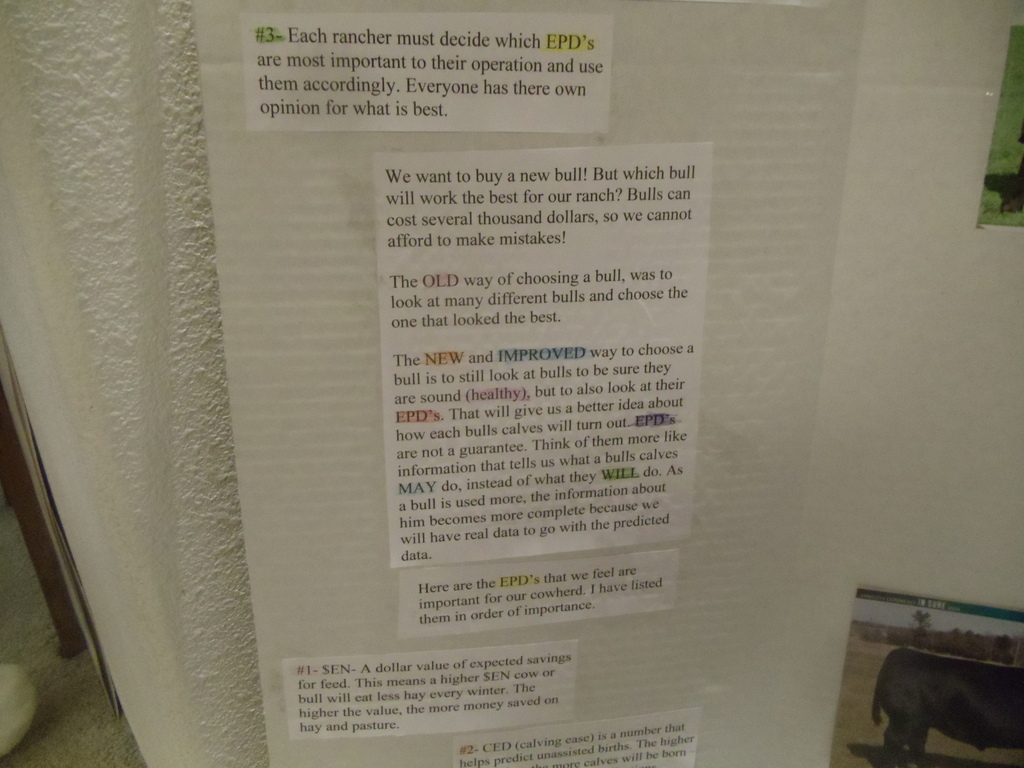 #3- Each rancher must decide which EPD's
are most important to their operation and use
them accordingly. Everyone has there own
opinion for what is best.
We want to buy a new bull! But which bull
will work the best for our ranch? Bulls can
cost several thousand dollars, so we cannot
afford to make mistakes!
The OLD way of choosing a bull, was to
look at many different bulls and choose the
one that looked the best.
The NEW and IMPROVED way to choose a
bull is to still look at bulls to be sure they
are sound (healthy), but to also look at their
EPD's. That will give us a better idea about
how each bulls calves will turn out. EPD's
are not a guarantee. Think of them more like
information that tells us what a bulls calves
MAY do, instead of what they WILL do. As
a bull is used more, the information about
him becomes more complete because we
will have real data to go with the predicted
data.
Here are the EPD's that we feel are
important for our cowherd. I have listed
them in order of importance.
#1- $EN- A dollar value of expected savings
for feed. This means a higher $EN cow or
bull will eat less hay every winter. The
higher the value, the more money saved on
hay and pasture.
#2- CED (calving ease) is a number that
helps predict unassisted births. The higher
the more calves will be born